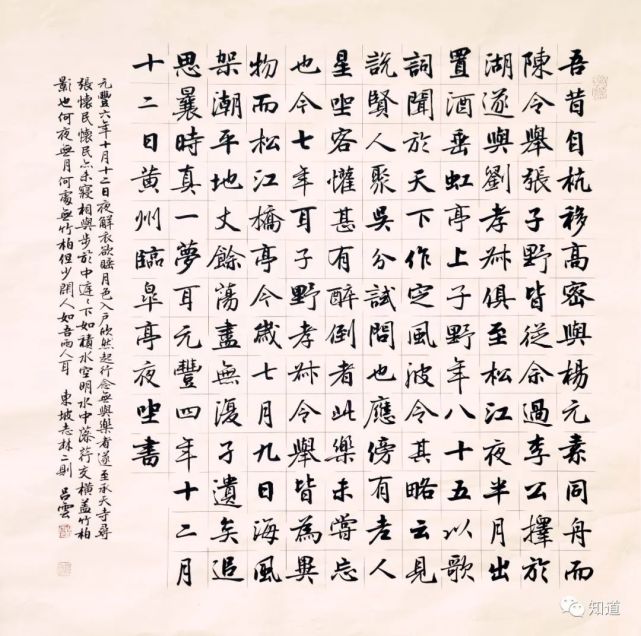 吾昔自杭移高密與楊元素同舟而
陳令舉張子野皆從余過李公擇於
湖遂與劉孝叔俱至松江夜半月出
置酒垂虹亭上子野年八十五以歌
詞聞於天下作定風波令其略云見
說賢人聚吳分試問也應傍有老人
星坐客懽甚有醉倒者此樂未嘗忘
也今七年耳子野孝叔令舉皆為異
物而松江橋亭今歲七月九日海風
架潮平地丈餘蕩盡無復孑遺矣追
思曩時真一夢耳元豐四年十二月
十二日黃州臨皋亭夜坐書
元豐六年十月十二日夜解衣欲睡月色入戶欣然起行念無與樂者遂至承天寺尋
張懷民懷民亦未寢相與步於中庭〻下如積水空明水中藻荇交橫蓋竹柏
影也何夜無月何處無竹柏但少閑人如吾兩人耳 東坡志林則 呂雲
知道